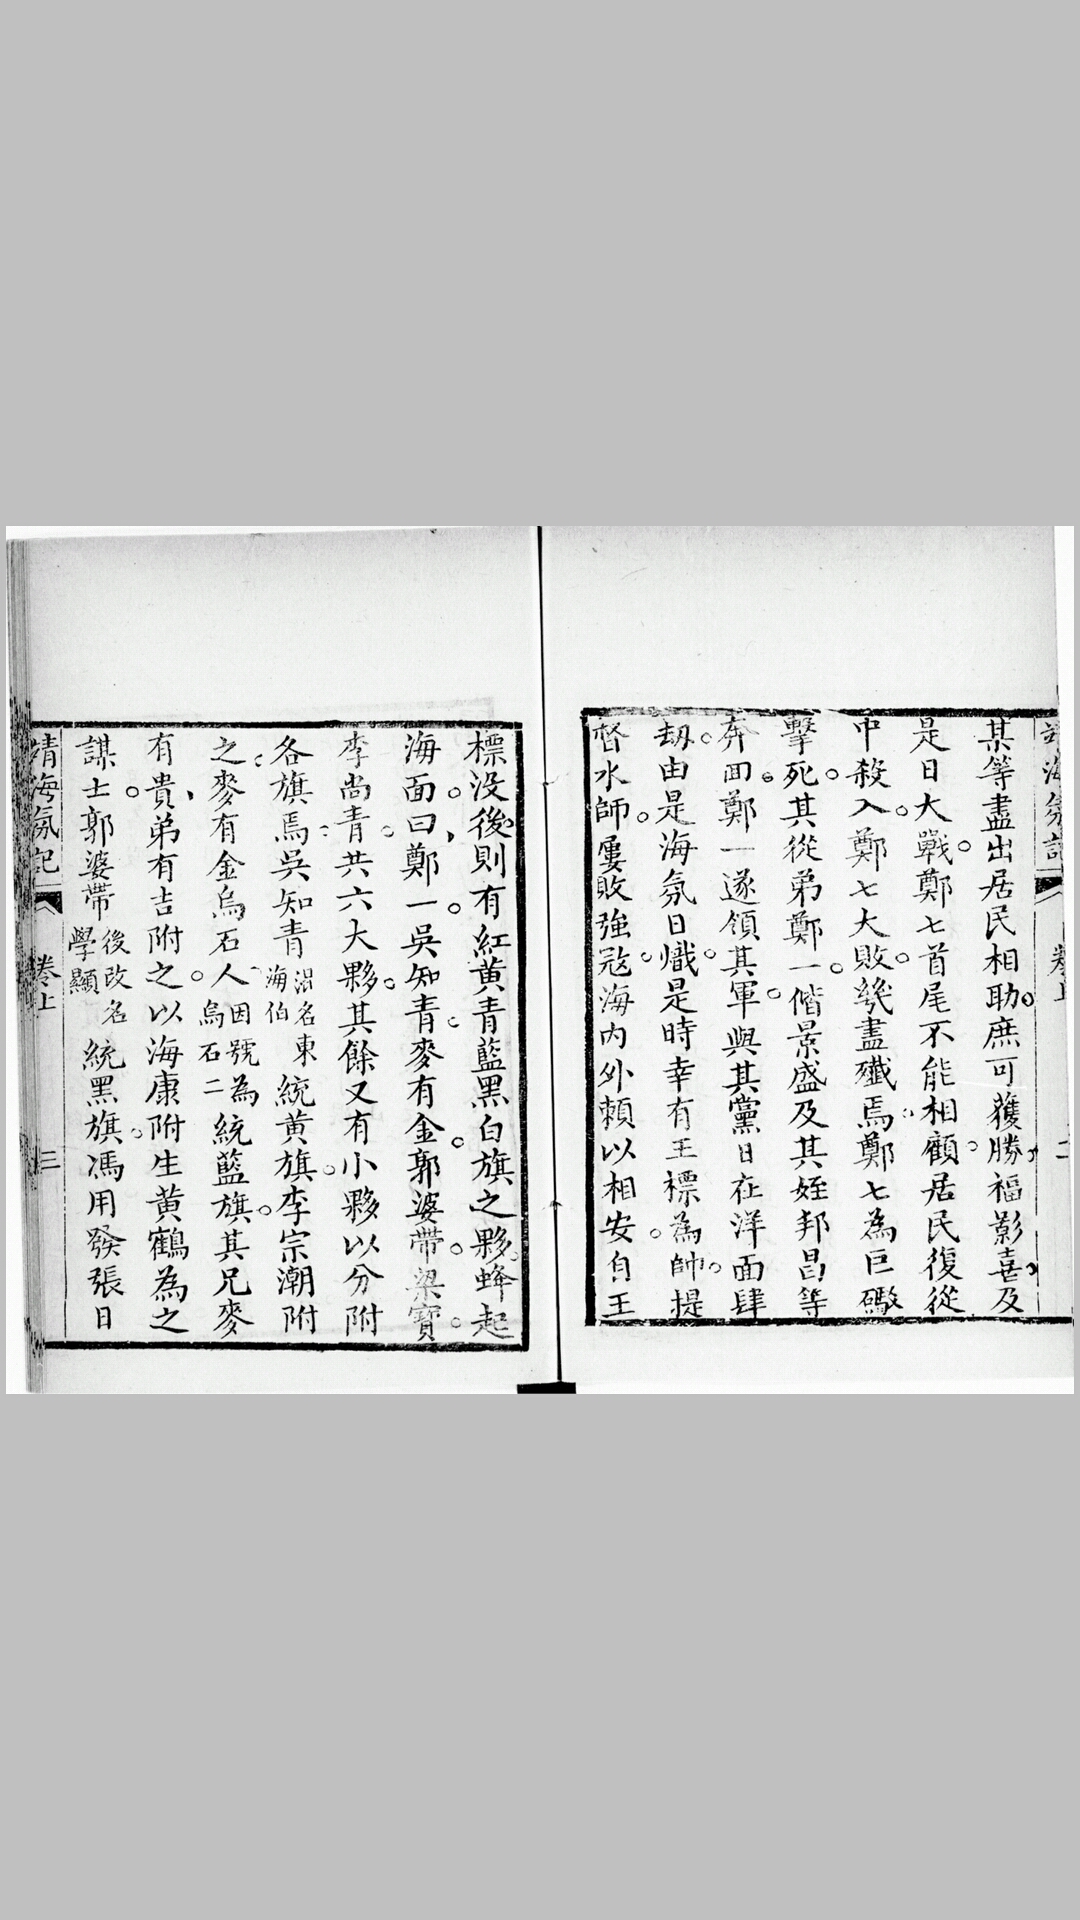 某等盡出居民相助。庶可獲勝，福影喜，及
是日大戰。鄭七首尾不能相顧。居民復從
中殺入。鄭七大敗。幾盡殲焉。鄭七為巨礮
擊死。其從弟鄭一。偕景盛及其姪邦昌等
奔回。鄭一遂領其軍。與其黨日在洋面肆
劫。由是海氛日熾。是時幸有王標為帥。提
督水師。屢敗強寇。海內外賴以相安。自王
標没後。則有紅黄青藍黑白旗之夥。蜂起
海面。曰，鄭一。吳知青。麥有金。郭婆帶。梁寶。
李尚青。共六大夥。其餘又有小夥以分附
各旗焉。吳知青
混名東
海伯
統黄旗。李宗潮附
之。麥有金烏石人。
因號為
烏石二
統藍旗。其兄麥
有貴，弟有吉附之。以海康附生黄鶴為之
謀士。郭婆帶
後改名
學顯
統黑旗。馮用發張日
靖海氛記
卷上
三